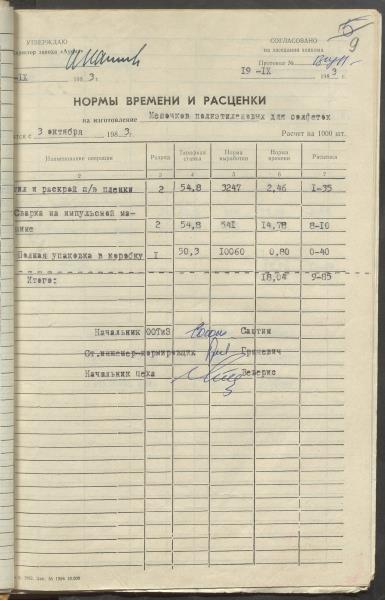 УТВЕРЖДАЮ
СОГЛАСОВАНО
Директор завода
на заседании завкома
Протокол №
-IX 1983 г.
19 -IX 1983 г.
9
НОРМЫ ВРЕМЕНИ И РАСЦЕНКИ
на изготовление Мешочков полиэтиленовых для салфеток
3 октября 1983 г. Расчет на 1000 шт.
Наименование операции Разряд Тарифная ставка Норма выработки Норма времени Расценка
2 3 4 5 6 7
и раскрой п/э пленки 2 54,8 3247 2,46 I-35
Сварка на импульсной ма-
шине 2 54,8 541 14,78 8-10
Полная упаковка в коробку I 50,3 10060 0,80 0-40
Итого: 18,04 9-85
Начальник ООТиЗ
Ст.инженер-нормировщик Гриневич
Начальник цеха